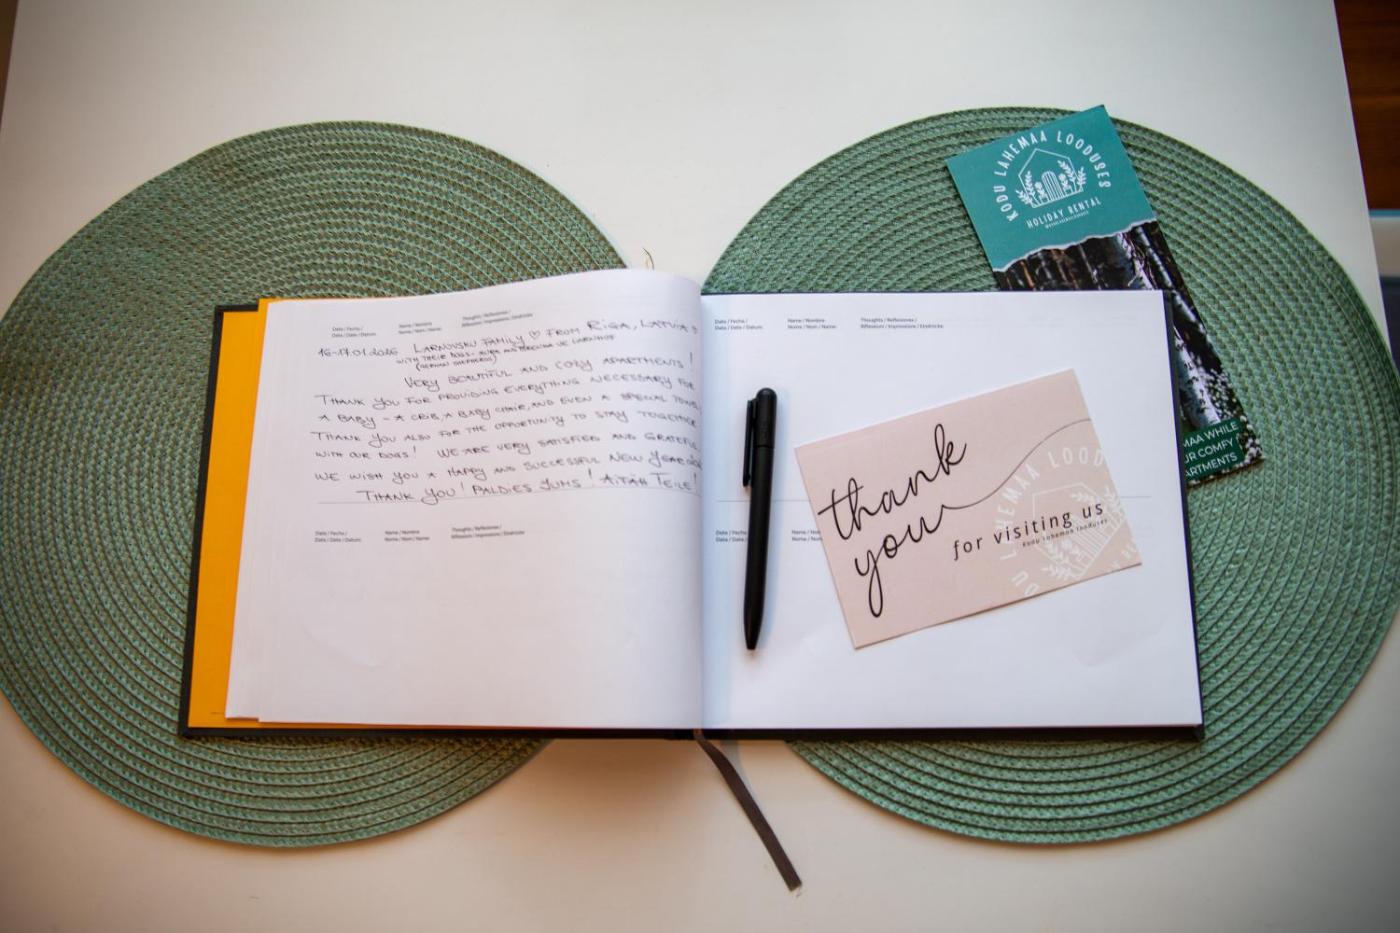 Date / Fecha /
Date / Date / Datum:
Name / Nombre
Nome / Nom / Name:
Thoughts / Reflexiones /
Riflessioni / Impressions / Eindrücke
16-17.01.2026 LARNOVSKU FAMILY ♡ FROM RIGA, LATVIA
WITH THEIR DOGS - AND
(GERMAN SHEPHERDS)
VERY BEAUTIFUL AND COZY APARTMENTS!
THANK YOU FOR PROVIDING EVERYTHING NECESSARY FOR
A BABY - A CRIB, A BABY CHAIR, AND EVEN A SPECIAL
THANK YOU ALSO FOR THE OPPORTUNITY TO STAY TOGETHER
WITH OUR DOGS! WE ARE VERY SATISFIED AND
WE WISH YOU A HAPPY AND SUCCESSFUL NEW YEAR
THANK YOU! PALDIES JUMS! AITÄH TEILE!
Date / Fecha /
Date / Date / Datum:
Name / Nombre
Nome / Nom / Name:
Thoughts / Reflexiones /
Riflessioni / Impressions / Eindrücke
Date / Fecha /
Date / Date / Datum:
Name / Nombre
Nome / Nom / Name:
Thoughts / Reflexiones /
Riflessioni / Impressions / Eindrücke
Date / Fecha /
Date / Date
thank
you
for visiting us
Kodu Lahemaa looduses
KODU LAHEMAA LOODUSES
HOLIDAY RENTAL
MAA WHILE
UR COMFY
ARTMENTS